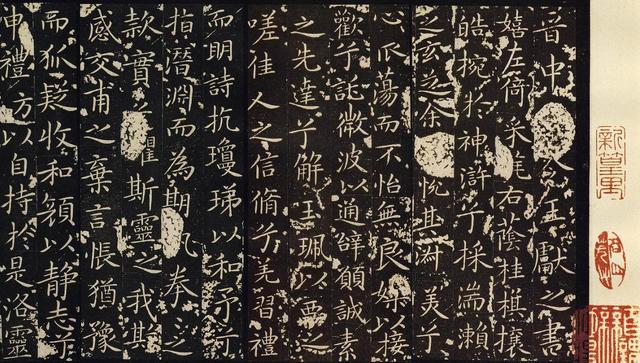 晉中王獻之書
嬉左倚采旄右蔭桂旗攘
皓捥於神滸兮採湍瀨
之玄芝余悅其淑美兮
心蕩而不怡無良媒以接
歡兮託微波以通辭願誠素
之先達兮解玉珮以要之
嗟佳人之信脩兮羌習禮
而明詩抗瓊珶以和予兮
指潛淵而為期執拳之
款實兮懼斯靈之我欺
感交甫之棄言悵猶豫
而狐疑收和顏以静志兮
申禮防以自持於是洛靈